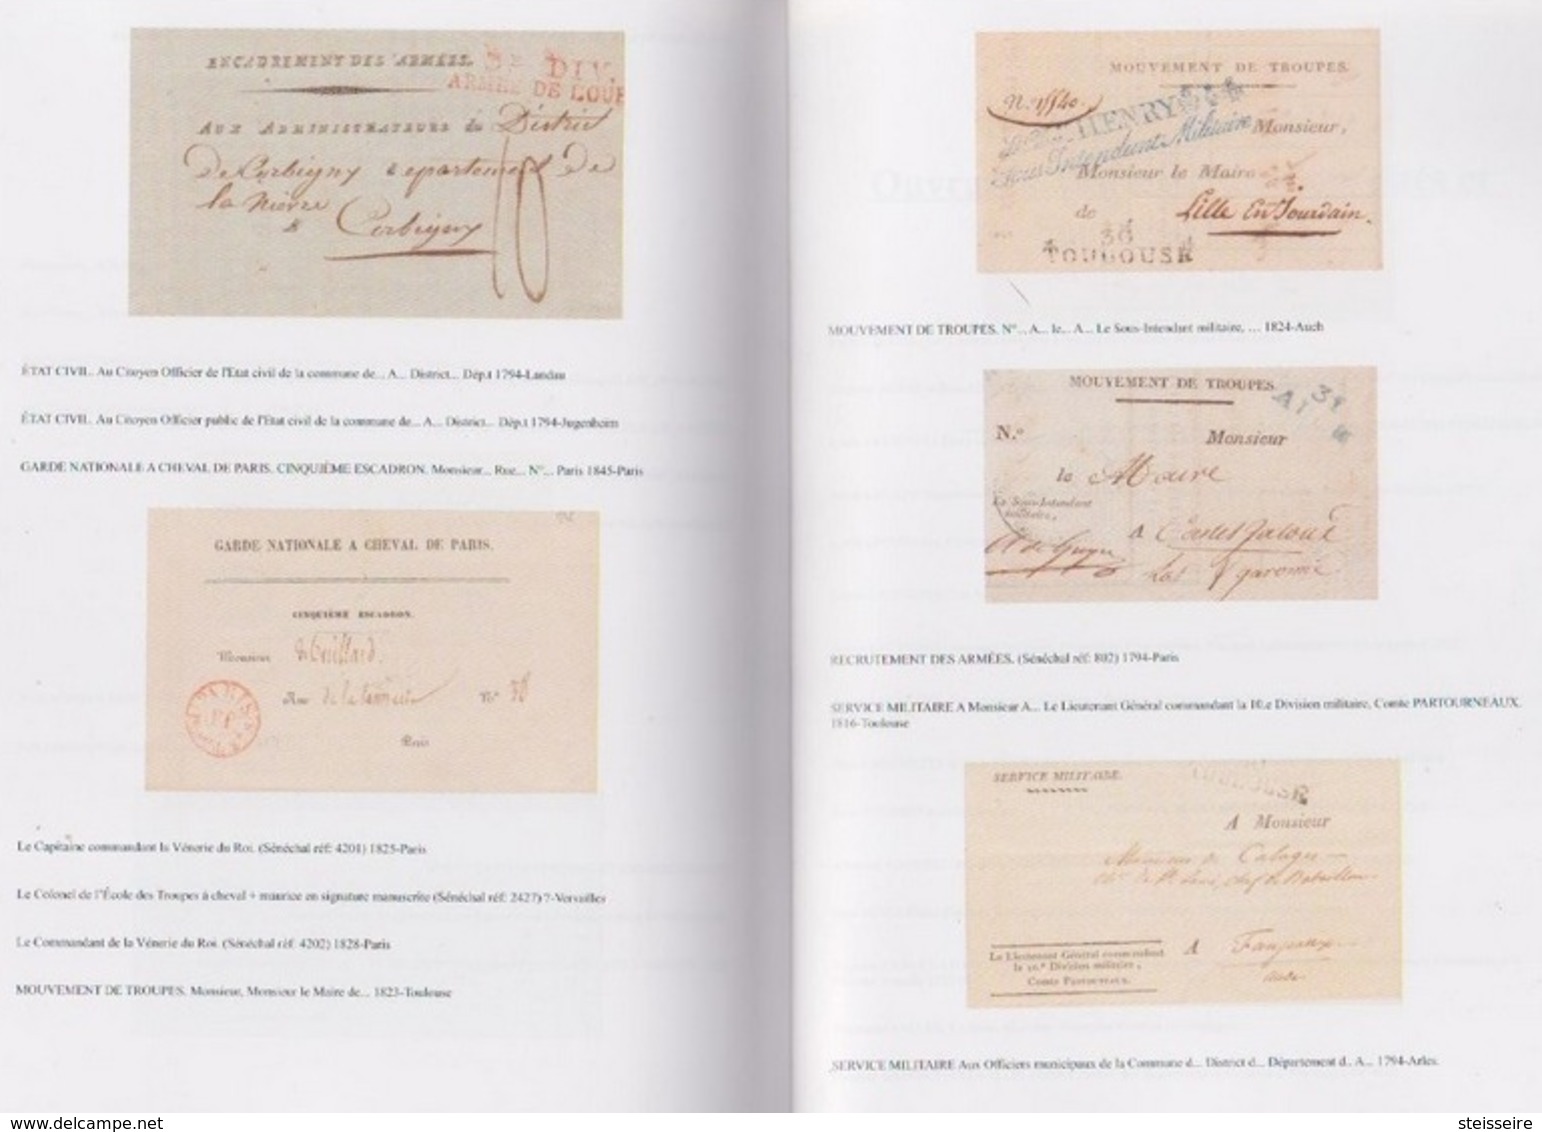 ENCADREMENT DES ARMÉES.
DIV.
ARMÉE DE L'OUE
AUX ADMINISTRATEURS du District
De Corbigny departement De
la nievre
a Corbigny
10
ÉTAT CIVIL. Au Citoyen Officier de l'Etat civil de la commune de... A... District... Dép.t 1794-Landau
ÉTAT CIVIL. Au Citoyen Officier public de l'Etat civil de la commune de... A... District... Dép.t 1794-Jugenheim
GARDE NATIONALE A CHEVAL DE PARIS. CINQUIÈME ESCADRON. Monsieur... Rue... N°... Paris 1845-Paris
GARDE NATIONALE A CHEVAL DE PARIS.
CINQUIÈME ESCADRON.
Monsieur
Rue de la N°. 38
Paris
PARIS
Le Capitaine commandant la Vénerie du Roi. (Sénéchal réf: 4201) 1825-Paris
Le Colonel de l'École des Troupes à cheval + maurice en signature manuscrite (Sénéchal réf: 2427) ?-Versailles
Le Commandant de la Vénerie du Roi. (Sénéchal réf: 4202) 1828-Paris
MOUVEMENT DE TROUPES. Monsieur, Monsieur le Maire de... 1823-Toulouse
MOUVEMENT DE TROUPES.
HENRY
Sous Intendant Militaire
Monsieur,
Monsieur le Maire
de Lille En Jourdain.
30
TOULOUSE
MOUVEMENT DE TROUPES. N°... A... le... A... Le Sous-Intendant militaire, ... 1824-Auch
MOUVEMENT DE TROUPES.
N.° Monsieur
le Maire
Le Sous-Intendant
militaire,
A Castel Jaloux
Lot & garonne
RECRUTEMENT DES ARMÉES. (Sénéchal réf: 802) 1794-Paris
SERVICE MILITAIRE A Monsieur A... Le Lieutenant Général commandant la 10.e Division militaire, Comte PARTOURNEAUX.
1816-Toulouse
SERVICE MILITAIRE.
A Monsieur
A Fanjeaux
aude
Le Lieutenant Général commandant
la 10.e Division militaire,
Comte PARTOUNEAUX.
SERVICE MILITAIRE Aux Officiers municipaux de la Commune d... District d... Département d.. A... 1794-Arles.
www.delcampe.net
steisseire